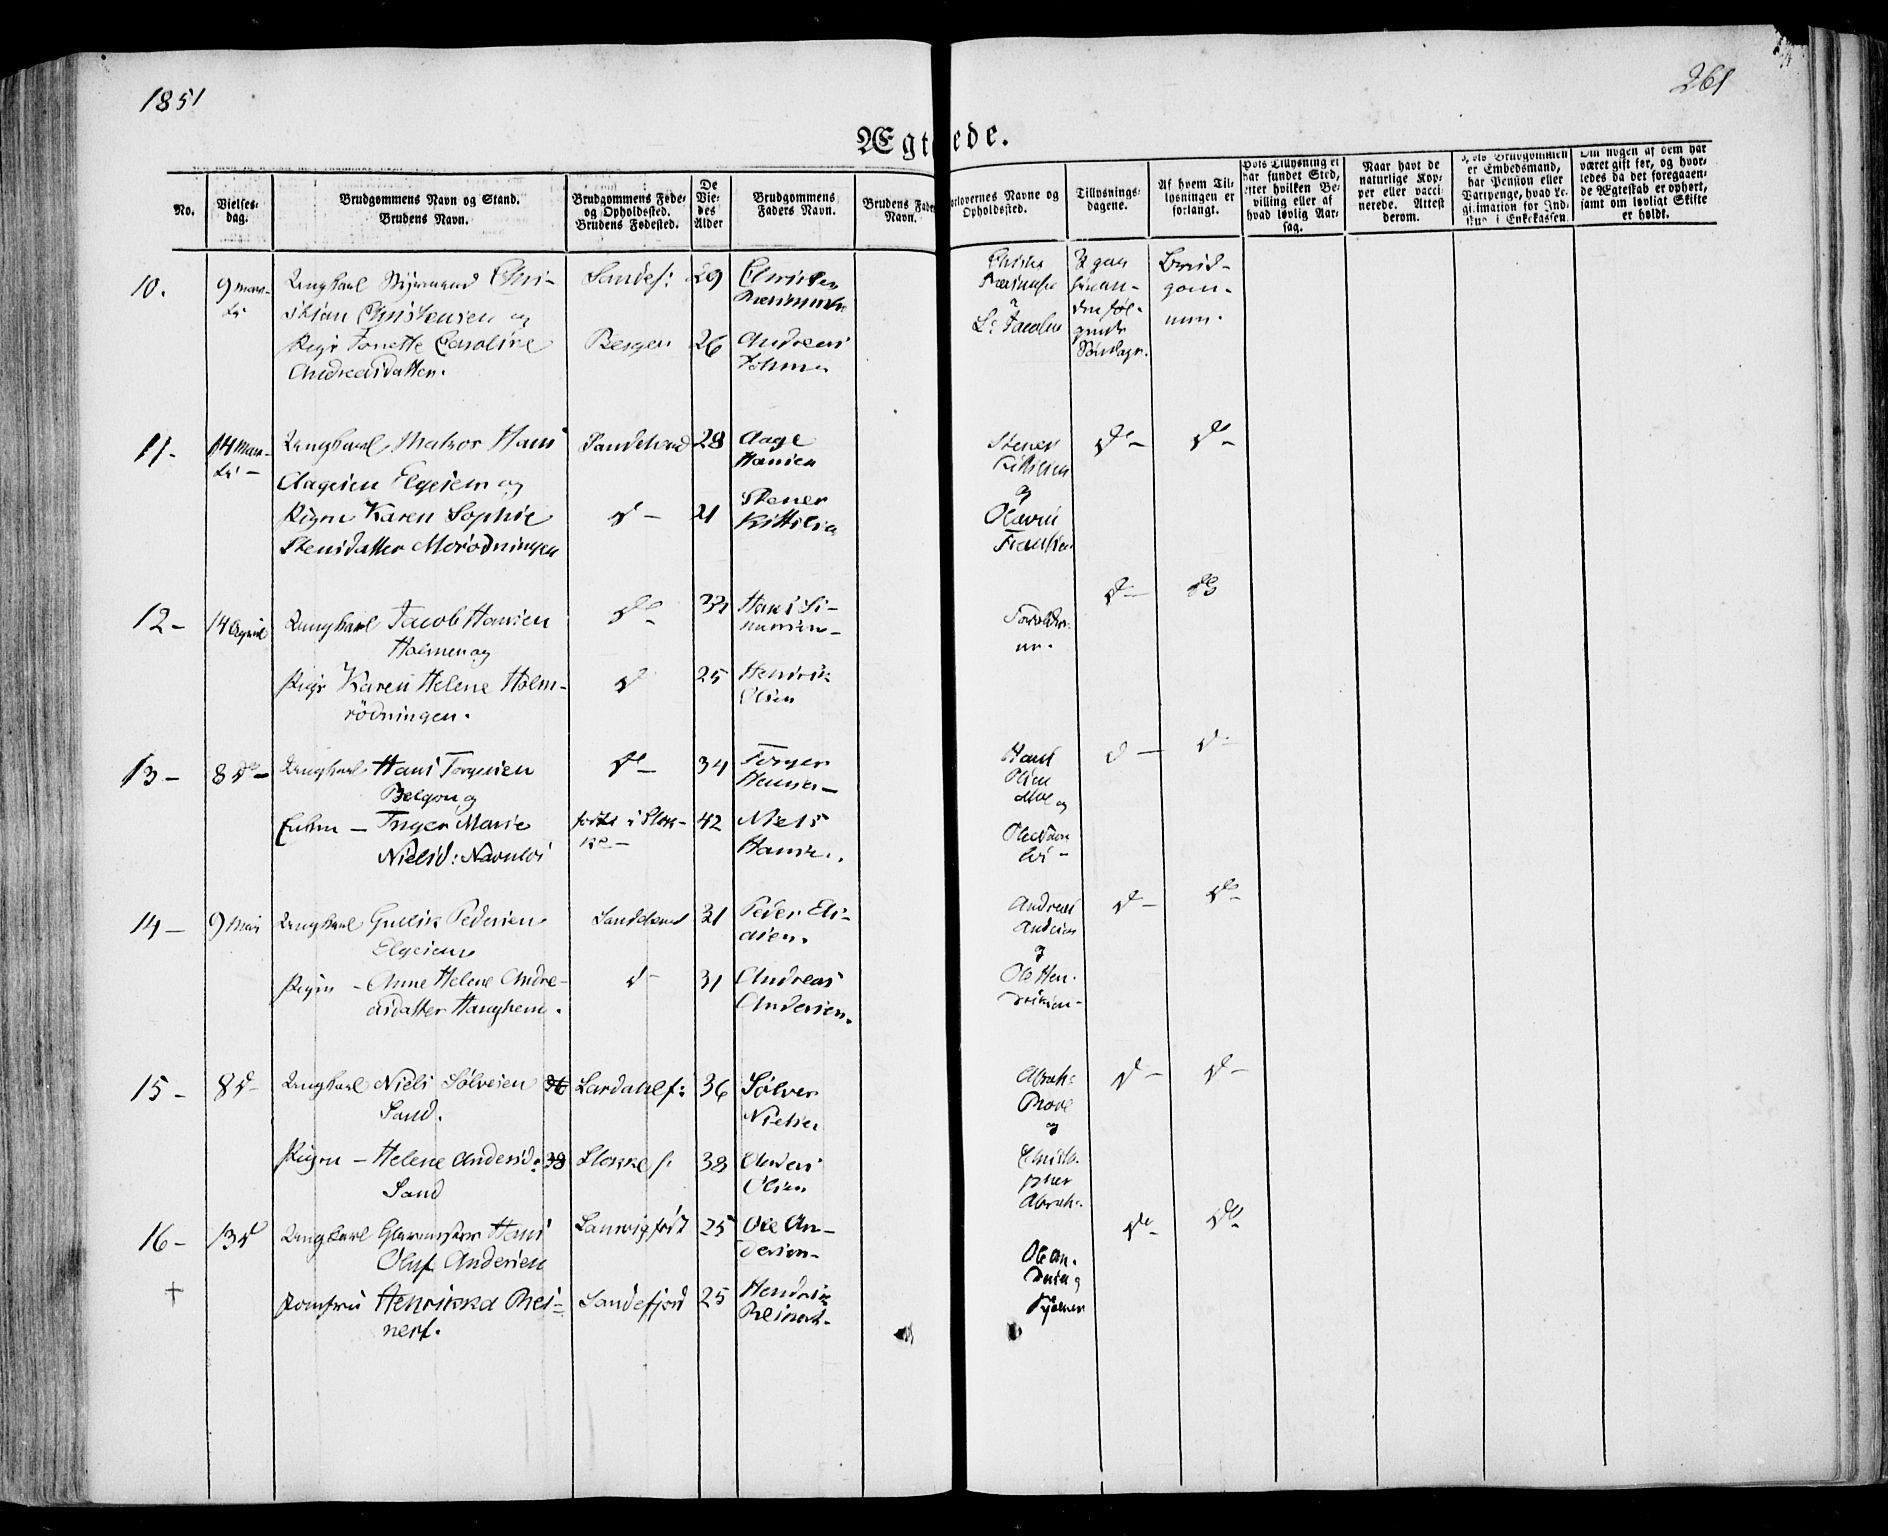 1851
261
Ægteviede.
No.
Vielses-
dag.
Brudgommens Navn og Stand.
Brudens Navn.
Brudgommens Føde-
og Opholdssted.
Brudens Fødested.
De
Vie-
des
Alder
Brudgommens
Faders Navn.
Brudens Faders
Navn.
Forlovernes Navne og
Opholdssted.
Tillysnings-
dagene.
Af hvem Til-
lysningen er
forlangt.
Hvis Tillysning ei
har fundet Sted,
efter hvilken Be-
villing eller af
hvad lovlig Aar-
sag.
Naar havt de
naturlige Kop-
per eller vacci-
nerede. Attest
derom.
Hvis Brudgommen
er Embedsmand,
har Pension eller
Vartpenge, hvad Le-
gitimation for Ind-
skud i Enkekassen.
Om nogen af dem har
været gift før, og hvor-
ledes da det foregaaen-
de Ægteskab er ophørt,
samt om lovligt Skifte
er holdt.
10.
9 mar-
ts
Ungkarl Styrmand Chri-
stian Christensen og
Pige Tonette Caroline
Andreasdatter.
Sandef:
Bergen
29
26
Christen
Andreas
L: Jacobsen
3 gan
den føl-
gende
Søndage.
Brud-
gom-
men.
11-
14 mar-
ts -
Ungkarl Mathias Hans
Aagesen Elgesem og
Pigen Karen Sophie
Stensdatter Morødningen
Sandeherred
d -
28
21
Aage
Hansen
Stener
Kittilsen
Stener
Kittilsen
og
do -
do -
12-
14 April
Ungkarl Jacob Hansen
Holmen og
Pige Karen Helene Holm-
rödningen.
do -
d
33
25
Hans Si-
monsen-
Henrik
Olsen
Forældre-
ne.
d-
do
13-
8 do-
Ungkarl Hans Torgersen
og
Enken - Inger Marie
Nielsd:
do -
født i Stok-
ke -
34
42
Torger
Hansen -
Niels
Hansen.
Hans
Olsen
og
d -
d -
14-
9 Mai
Ungkarl Gullik Pedersen
Elgesem
Pigen - Anne Helene Andre-
asdatter Haughem.
Sandeherred
d-
31
31
Peder Eli-
asen.
Andreas
Andersen.
Andreas
Andersen
og
Ole Hen-
driksen-
d -
do-
15-
8 d-
Ungkarl Niels Sølvesen 36
Sand.
Pigen - Helene Andersd: 38
Sand
Lardahl f:
Stokke f.
36
38
Sølver
Nielsen
Anders
Olsen
Abrah:
og
Christo-
pher
Abrah:
d -
d -
16-
+
13 d
Ungkarl Glarmester Hans
Oluf Andersen
Jomfru Henrikka Rei-
nert.
Laurvig født
Sandefjord
25
25
Ole An-
dersen-
Hendrik
Reinert-
Ole An-
dersen og
do-
do